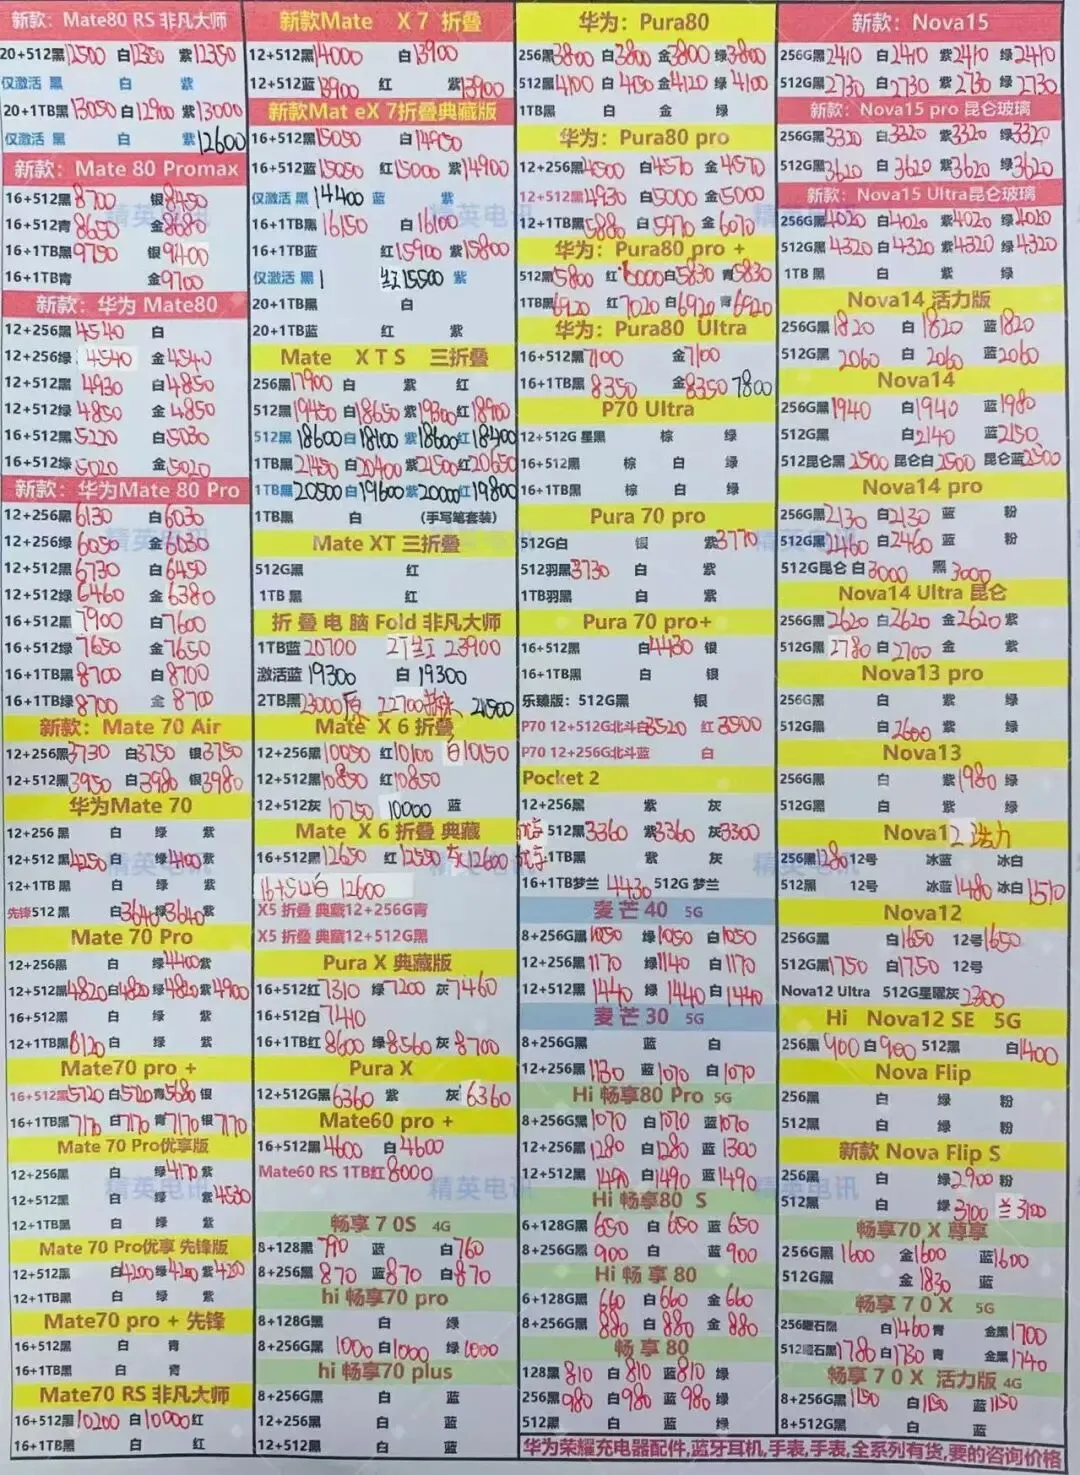 新款：Mate80 RS 非凡大师
20+512黑12500 白12350 紫12350
仅激活 黑 白 紫
20+1TB黑13050 白12900 紫13000
仅激活 黑 白 紫12600
新款：Mate 80 Promax
16+512黑8700 银8450
16+512青8650 金8680
16+1TB黑9750 银9400
16+1TB青 金9700
新款：华为 Mate80
12+256黑4540 白
12+256绿4540 金4540
12+512黑4930 白4850
12+512绿4850 金4850
16+512黑5220 白5030
16+512绿5020 金5020
新款：华为Mate 80 Pro
12+256黑6130 白6030
12+256绿6050 金6030
12+512黑6730 白6450
12+512绿6460 金6380
16+512黑7900 白7600
16+512绿7650 金7650
16+1TB黑8700 白8700
16+1TB绿8700 金8700
新款：Mate 70 Air
12+256黑3730 白3750 银3750
12+512黑3950 白3980 银3980
华为Mate 70
12+256 黑 白 绿 紫
12+512 黑4250 白 绿4100 紫
12+1TB 黑 白 绿 紫
先锋512 黑 白3640 绿3640 紫
Mate 70 Pro
12+256黑 白 绿4400 紫
12+512黑4820 白4820 绿4820 紫4900
16+512黑 白 绿 紫
12+1TB黑8120 白 绿 紫
Mate70 pro +
16+512黑5720 白5720 青5680 银
16+1TB黑7170 白7170 青7170 银7170
Mate 70 Pro优享版
12+256黑 白 绿4170 紫
12+512黑 白 绿 紫4530
12+1TB黑 白 绿 紫
Mate 70 Pro优享 先锋版
12+512黑 白4200 绿4200 紫4200
12+1TB黑 白 绿 紫
Mate70 pro + 先锋
16+512黑 白 青
16+1TB黑 白 青
Mate70 RS 非凡大师
16+512黑10200 白10000 红
16+1TB黑 白 红
新款Mate X 7 折叠
12+512黑14000 白13900
12+512蓝13900 红 紫13900
新款Mat eX 7折叠典藏版
16+512黑15050 白14950
16+512蓝15050 红15000 紫14900
仅激活 黑14400 蓝 紫
16+1TB黑16150 白16100
16+1TB蓝 红15900 紫15800
仅激活 黑 红15500 紫
20+1TB黑 白
20+1TB蓝 红 紫
Mate X T S 三折叠
256黑17900 白 紫 红
512黑19450 白18650 紫19300 红18900
512黑18600 白18100 紫18600 红18400
1TB黑21450 白20400 紫21500 红20650
1TB黑20500 白19600 紫20000 红19800
1TB黑 白 (手写笔套装)
Mate XT 三折叠
512G黑 红
1TB黑 红
折 叠 电 脑 Fold 非凡大师
1TB蓝20700 2T 23900
激活蓝19300 白19300
2TB黑23000原 22700 21500
Mate X 6 折叠
12+256黑10050 红10100 白10150
12+512黑10850 红10850
12+512灰10750 10000 蓝
Mate X 6 折叠 典藏
16+512黑12650 红12550 灰12600
16+512白 12600
X5 折叠 典藏12+256G青
X5 折叠 典藏12+512G黑
Pura X 典藏版
16+512红7310 绿7200 灰7460
16+512白7410
16+1TB红8600 绿8560 灰8700
Pura X
12+512G黑6360 紫 灰6360
Mate60 pro +
16+512黑4600 白4600
Mate60 RS 1TB红8000
畅享 7 0S 4G
8+128黑790 蓝 白760
8+256黑870 蓝870 白870
hi 畅享70 pro
8+128G黑 白 绿
8+256G黑1000 白1000 绿1000
hi 畅享70 plus
8+256G黑 白 蓝
12+256黑 白 蓝
12+512黑 白 蓝
华为：Pura80
256黑3800 白3800 金3800 绿3800
512黑4100 白4150 金4120 绿4100
1TB黑 白 金 绿
华为：Pura80 pro
12+256黑4500 白4570 金4570
12+512黑4930 白5000 金5000
12+1TB黑5880 白5970 金6070
华为：Pura80 pro +
512黑5800 红6000 白5830 青5830
1TB黑6920 红7020 白6920 青6920
华为：Pura80 Ultra
16+512黑7100 金7100
16+1TB黑8350 金8350 7800
P70 Ultra
12+512G 星黑 棕 绿
16+512黑 棕 白 绿
16+1TB黑 棕 白 绿
Pura 70 pro
512G白 银 紫3770
512羽黑3730 白 紫
1TB羽黑 白 紫
Pura 70 pro+
16+512黑 白4430 银
16+1TB黑 白 银
乐臻版：512G黑 银
P70 12+512G北斗白3520 红3500
P70 12+256G北斗蓝 白
Pocket 2
12+256黑 紫 灰
512黑3360 紫3360 灰3300
1TB黑 紫 灰
16+1TB梦兰4430 512G 梦兰
麦芒40 5G
8+256G黑1050 绿1050 白1050
12+256黑1170 绿1140 白1170
12+512黑1440 绿1440 白1440
麦芒30 5G
8+256G黑 蓝 白
12+256黑1130 蓝1070 白1070
Hi 畅享80 Pro 5G
8+256G黑1070 白1070 蓝1070
12+256黑1280 白1280 蓝1300
12+512黑1490 白1490 蓝1490
Hi 畅享80 S
6+128G黑650 白650 蓝650
8+256G黑900 白 蓝900
Hi 畅 享80
6+128G黑660 白660 金660
8+256G黑880 白880 金880
畅 享 80
128黑810 白810 蓝810 绿
256黑980 白980 蓝980 绿
512黑 白 蓝 绿
新款：Nova15
256G黑2410 白2410 紫2410 绿2410
512G黑2730 白2730 紫2730 绿2730
新款：Nova15 pro 昆仑玻璃
256G黑3320 白3320 紫3320 绿3320
512G黑3620 白3620 紫3620 绿3620
新款：Nova15 Ultra昆仑玻璃
256G黑4020 白4020 紫4020 绿4020
512G黑4320 白4320 紫4320 绿4320
1TB 黑 白 紫 绿
Nova14 活力版
256G黑1820 白1820 蓝1820
512G黑2060 白2060 蓝2060
Nova14
256G黑1940 白1940 蓝1980
512G黑 白2140 蓝2150
512昆仑黑2500 昆仑白2500 昆仑蓝2500
Nova14 pro
256G黑2130 白2130 蓝 粉
512G黑2460 白2460 蓝 粉
512G昆仑 白3000 黑3000
Nova14 Ultra 昆仑
256G黑2620 白2620 金2620 紫
512G黑2780 白2700 金 紫
Nova13 pro
256G黑 白 紫 绿
512G黑 白2600 紫 绿
Nova13
256G黑 白 紫1980 绿
512G黑 白 紫 绿
Nova12 活力
256黑1280 12号 冰蓝 冰白
512黑 12号 冰蓝1480 冰白1510
Nova12
256G黑 白1650 12号1650
512G黑1750 白1750 12号
Nova12 Ultra 512G星曜灰2300
Hi Nova12 SE 5G
256黑900 白900 512黑 白1400
Nova Flip
256黑 白 绿 粉
512黑 白 绿 粉
新款 Nova Flip S
256黑 白 绿2900 粉
512黑 白 绿3100 兰3100
畅享70 X 尊享
256G黑1600 金1600 蓝1600
512G黑 金1830 蓝
畅享 7 0 X 5G
256曜石黑 白1460 青 金黑1700
512曜石黑1780 白1730 青 金黑1740
畅享 7 0 X 活力版 4G
8+256G黑1150 白1150 蓝1150
8+512G黑 白 蓝
华为荣耀充电器配件,蓝牙耳机,手表,手表,全系列有货,要的咨询价格
精英电讯